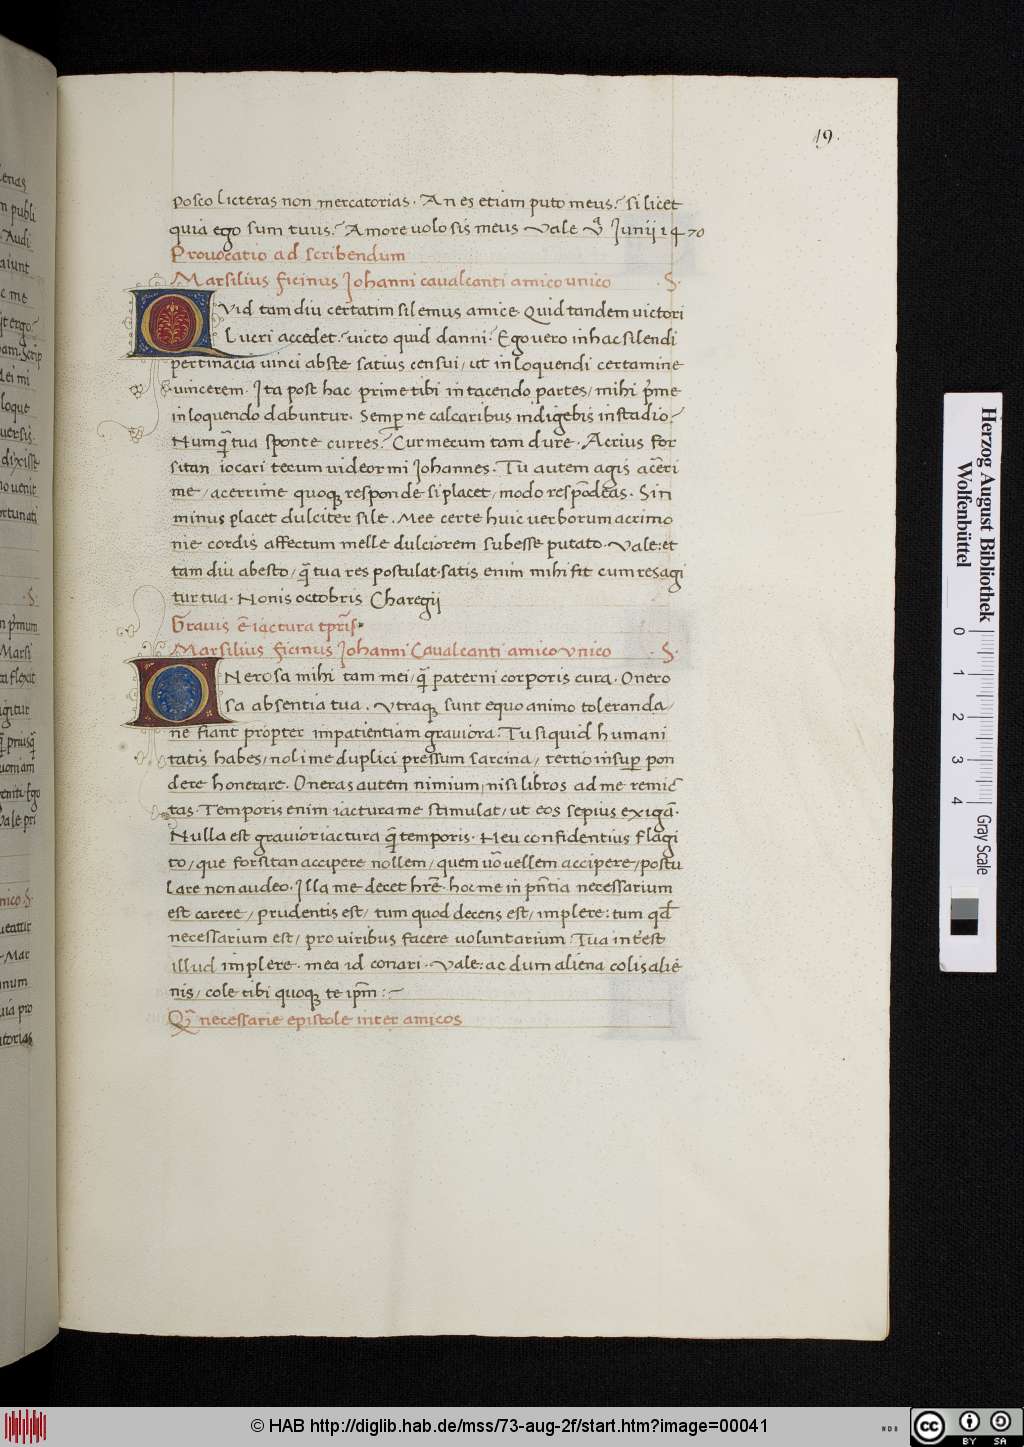 19.
posco licteras non mercatorias. An es etiam puto meus? si licet
quia ego sum tuus? Amore uolo sis meus Vale Junii 1470
Prouocatio ad scribendum
Marsilius ficinus Johanni caualcanti amico unico .S.
QVid tam diu certatim silemus amice Quid tandem uictori
Lucri accedet? uicto quid danni? Ego uero in hac silendi
pertinacia uinci abs te satius censui / ut in loquendi certamine
uincerem. Ita post hac prime tibi in tacendo partes / mihi p̄me
in loquendo dabuntur. Semper ne calcaribus indigebis in stadio?
Numq̄ tua sponte curres? Cur mecum tam dure. Acrius for
sitan iocari tecum uideor mi Johannes. Tu autem agis acr̄eri
me / acerrime quoque responde si placet / modo respōdeas. Sin
minus placet dulciter sile. Mee certe huic uerborum acrimo
nie cordis affectum melle dulciorem subesse putato. Vale: et
tam diu abesto / q̄ tua res postulat. satis enim mihi fit cum res agi
tur tua. Nonis octobris Charegii
Grauis ē iactura tp̄ris.
Marsilius ficinus Johanni Caualcanti amico Vnico .S.
ONerosa mihi tam mei / q̄ paterni corporis cura. Onero
sa absentia tua. Vtraque sunt equo animo toleranda /
ne fiant propter impatientiam grauiora. Tu si quid humani
tatis habes / noli me duplici pressum sarcina / tertio insuper pon
dere honerare. Oneras autem nimium / nisi libros ad me remic̄
tas. Temporis enim iactura me stimulat / ut eos sepius exigā.
Nulla est grauior iactura q̄ temporis. Neu confidentius flagi
to / que forsitan accipere nollem / quem uō uellem accipere / postu
lare non audeo. Illa me decet hr̄e. hoc me in pn̄tia necessarium
est carere / prudentis est / tum quod decens est / implere: tum qd̄
necessarium est / pro uiribus facere uoluntarium. Tua int̄est
illud implere. mea id conari. Vale: ac dum aliena colis aliē
nis / cole tibi quoque te ip̄m: ~
Q̄ necessarie epistole inter amicos
Herzog August Bibliothek
Wolfenbüttel
0 1 2 3 4 Gray Scale
© HAB http://diglib.hab.de/mss/73-aug-2f/start.htm?image=00041
WDB
cc BY SA